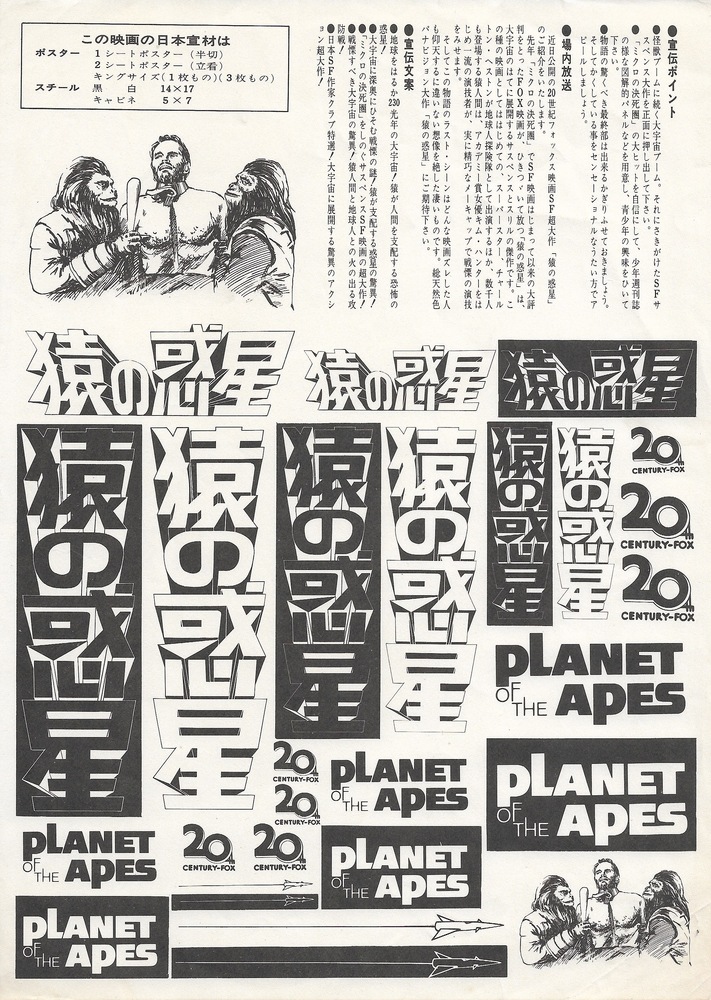 この映画の日本宣材は
ポスター 1シートポスター(半切)
2シートポスター(立看)
キングサイズ(1枚もの)(3枚もの)
スチール 黒 白 14×17
キャビネ 5×7
●宣伝ポイント
●怪獣ブームに続く大宇宙ブーム。それにさきがけたSFサ
スペンス大作を正面に押し出して下さい。
●「ミクロの決死圏」の大ヒットを自信にして、少年週刊誌
の様な図解的パネルなどを用意し、青少年の興味をひいて
下さい。
●物語の驚くべき最終部は出来るかぎりふせておきましょう。
そしてかくしている事をセンセーショナルなうたい方でア
ピールしましょう。
●場内放送
近日公開の20世紀フォックス映画SF超大作「猿の惑星」
のご紹介をいたします。
先年「ミクロの決死圏」でSF映画はじまって以来の大評
判をとったFOX映画が、ひきつゞいて放つ「猿の惑星」は、
大宇宙のはてに展開するサスペンスとスリルの傑作です。こ
の種の映画としてははじめての、スーパースター、チャール
トン・ヘストンが地球人探険隊として出演するほか、数千人
も登場する猿人間は、アカデミー賞女優キム・ハンターをは
じめ一流の演技者が、実に精巧なメーキャップで戦慄の演技
をみせます。
そしてこの物語のラスト・シーンはどんな映画ズレした人
も仰天するに違いない想像を絶した凄いものです。総天然色
パナビジョン大作「猿の惑星」にご期待下さい。
●宣伝文案
●地球をはるか230光年の大宇宙!猿が人間を支配する恐怖の
惑星!
●大宇宙に深奥にひそむ戦慄の謎!猿が支配する惑星の驚異!
●「ミクロの決死圏」をしのぐサスペンスSF映画の超大作!
●戦慄すべき大宇宙の驚異!猿人間と地球人との火の出る攻
防戦!
●日本SF作家クラブ特選!大宇宙に展開する驚異のアクシ
ョン超大作!
猿の惑星
猿の惑星
猿の惑星
猿の惑星
猿の惑星
猿の惑星
猿の惑星
猿の惑星
猿の惑星
20th
CENTURY-FOX
20th
CENTURY-FOX
20th
CENTURY-FOX
PLANET
OF THE APES
20th
CENTURY-FOX
20th
CENTURY-FOX
PLANET
OF THE APES
PLANET
OF THE APES
PLANET
OF THE APES
20th
CENTURY-FOX
20th
CENTURY-FOX
PLANET
OF THE APES
PLANET
OF THE APES